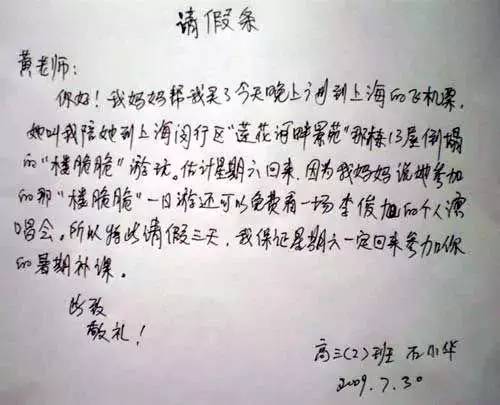 请假条
黄老师:
你好!我妈妈帮我买了今天晚上到上海的飞机票,
她叫我陪她到上海闵行区"莲花河畔景苑"那栋13层倒塌
的"楼脆脆"游玩。估计星期六回来,因为我妈妈说她参加
的那"楼脆脆"一日游还可以免费看一场李俊旭的个人演
唱会。所以特此请假三天,我保证星期六一定回来参加你
的暑期补课。
此致
敬礼!
高三(2)班 石小华
2009.7.30